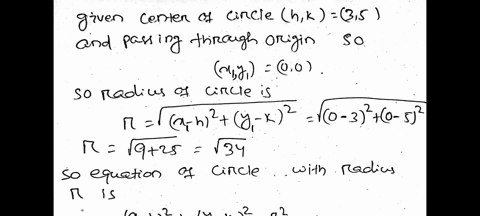 given center of circle (h,k) = (3,5)
and passing through origin so
(x₁,y₁) = (0,0).
so radius of circle is
r = √(x₁-h)²+(y₁-k)² = √(0-3)²+(0-5)²
r = √9+25 = √34
so equation of circle .. with radius
r is